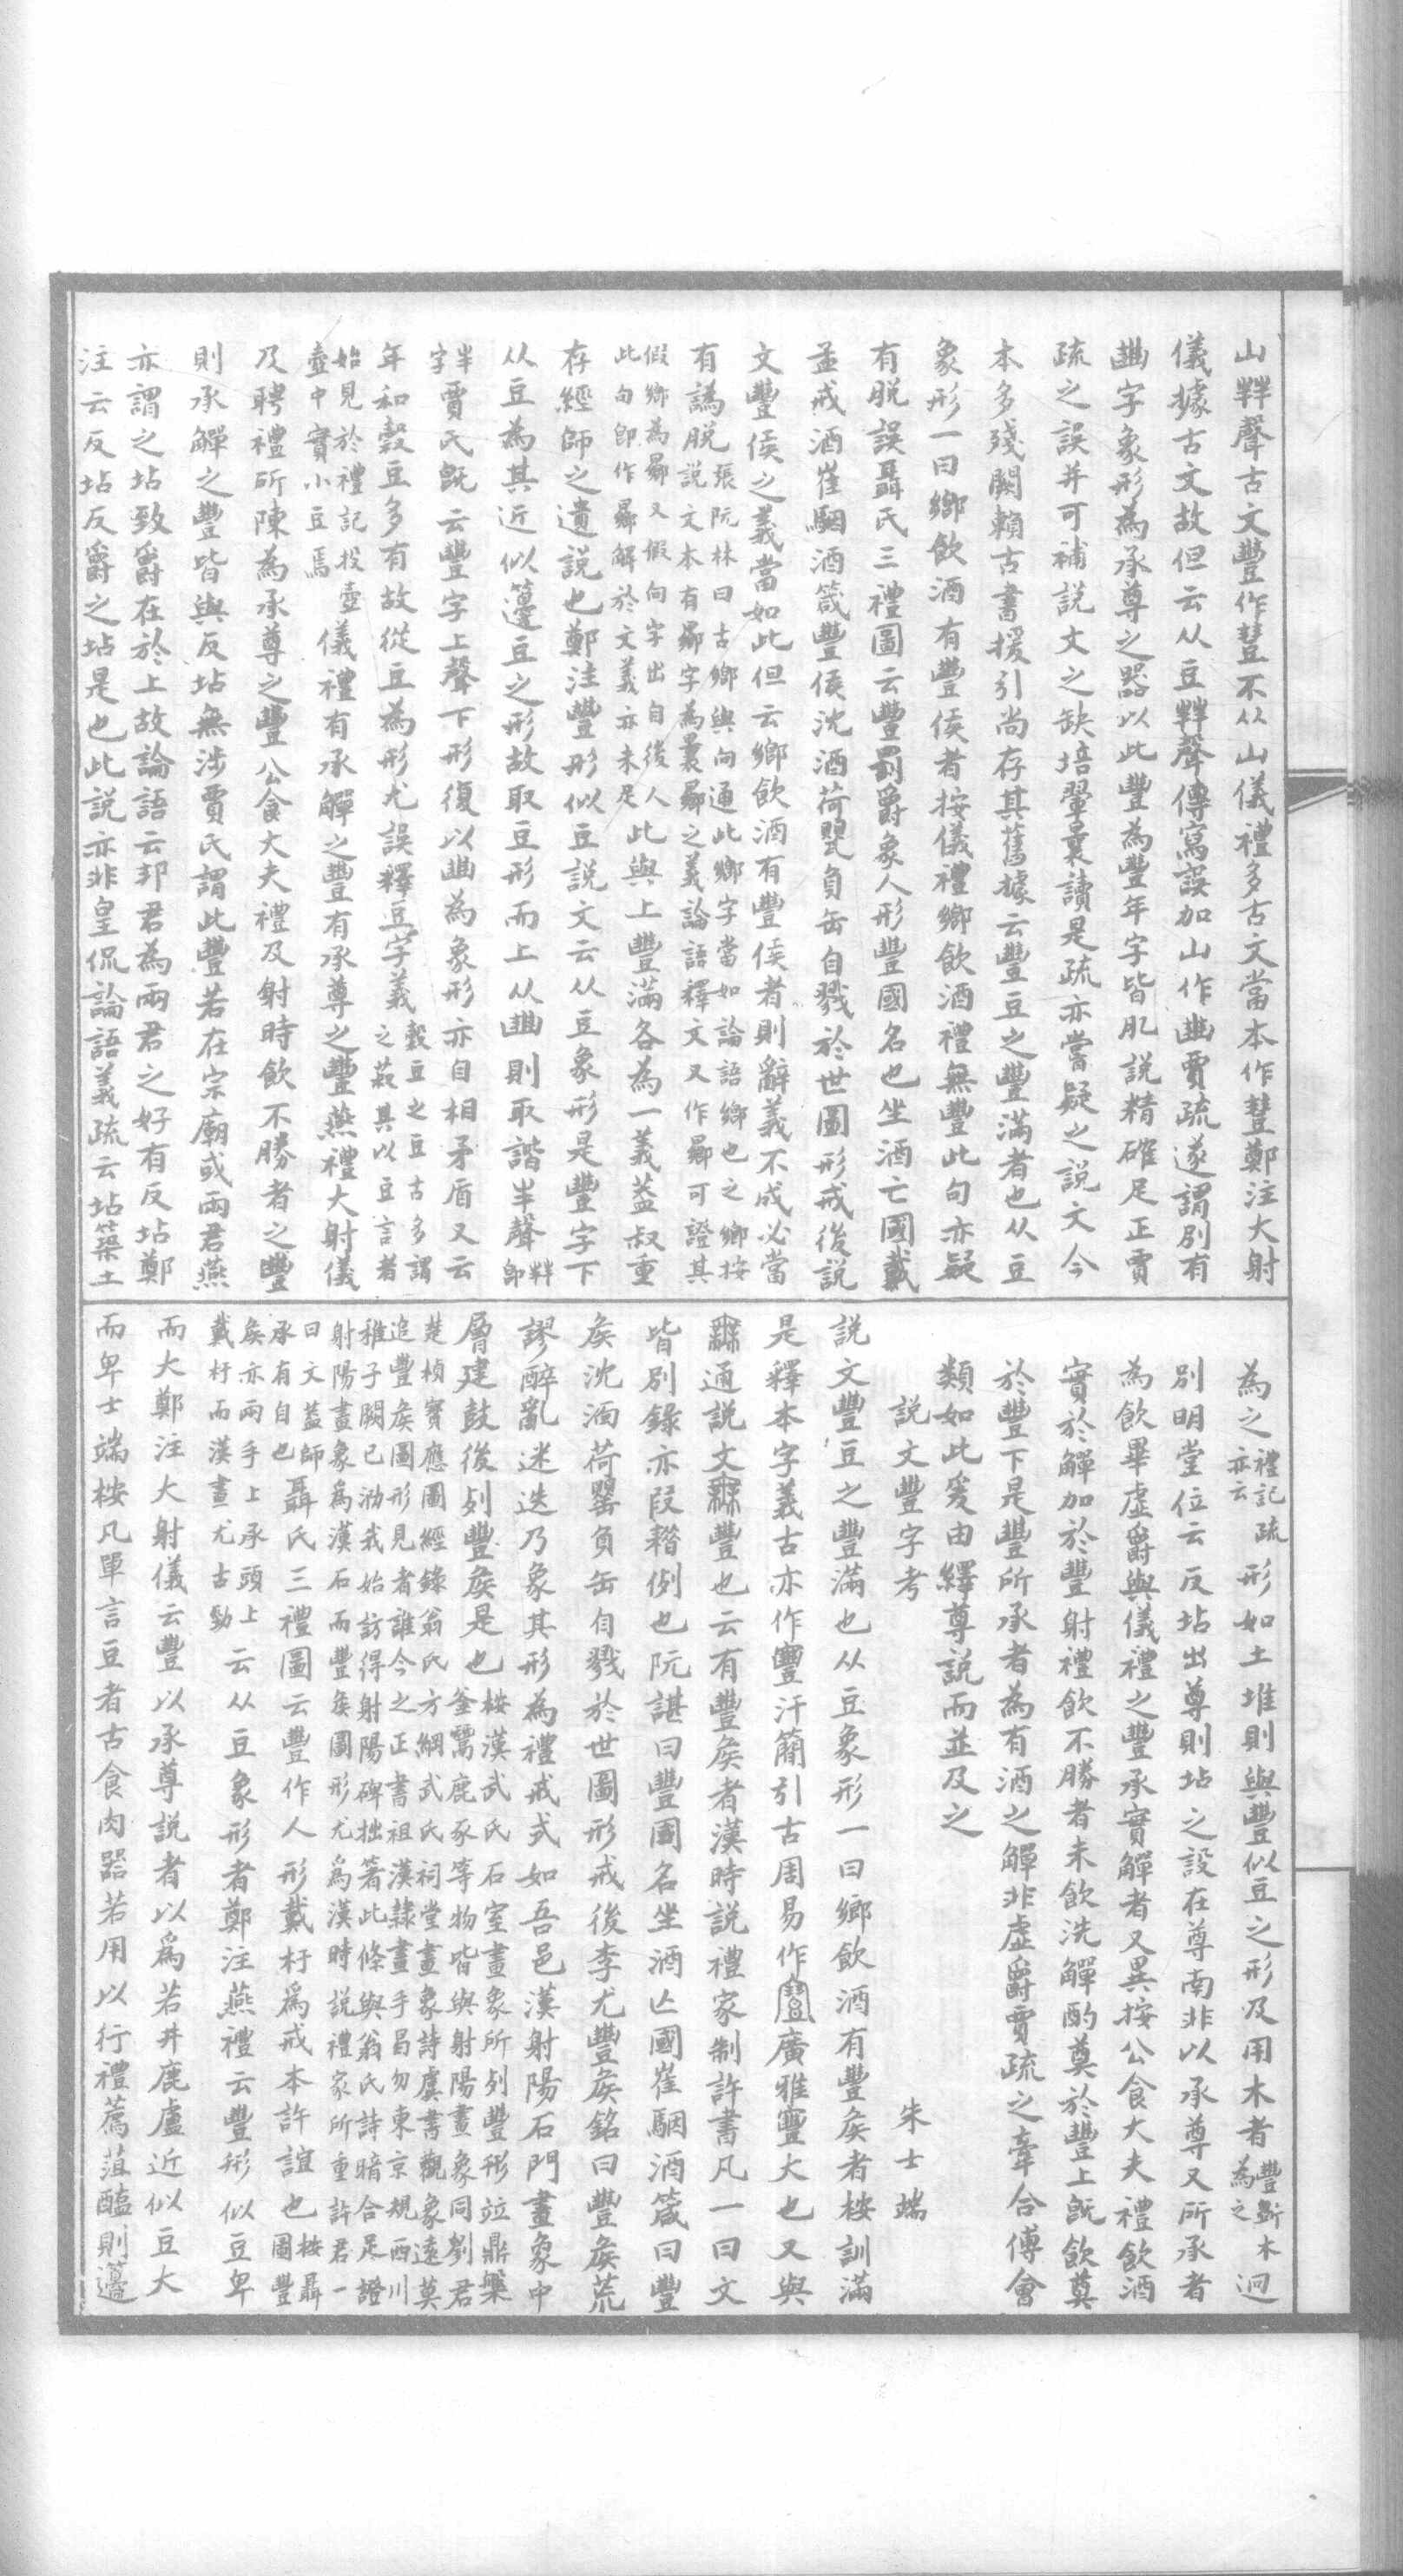 山丰丰聲古文豐作豆不从山儀禮多古文當本作豆鄭注大射
儀據古文故但云从豆聲傳寫誤加山作賈疏遂謂別有
字象形為承尊之器以此豐為豐年字皆肊說精確足正賈
疏之誤并可補說文之缺培翬曩讀是疏亦嘗疑之說文今
本多殘闕賴古書援引尚存其舊據云豐豆之豐滿者也从豆
象形一曰鄉飲酒有豐侯者按儀禮鄉飲酒禮無豐此句亦疑
有脫誤聶氏三禮圖云豐罰爵象人形豐國名也坐酒亡國戴
盂戒酒崔駰酒箴豐侯沈酒荷甖負缶自戮於世圖形戒後說
文豐侯之義當如此但云鄉飲酒有豐侯者則辭義不成必當
有譌脫張阮林曰古鄉與向通此鄉字當如論語鄉也之鄉按
說文本有曏字為曩曏之義論語釋文又作曏可證其
假鄉為曏又假向字出自後人
此句卽作曏解於文義亦未足此與上豐滿各為一義葢叔重
存經師之遺說也鄭注豐形似豆說文云从豆象形是豐字下
从豆為其近似籩豆之形故取豆形而上从則取諧半聲
半字賈氏旣云豐字上聲下形復以為象形亦自相矛盾又云
年和穀豆多有故從豆為形尤誤釋豆字義穀豆之豆古多謂
之菽其以豆言者
始見於禮記投壺
壺中實小豆焉儀禮有承觶之豐有承尊之豐燕禮大射儀
及聘禮所陳為承尊之豐公食大夫禮及射時飲不勝者之豐
則承觶之豐皆與反坫無涉賈氏謂此豐若在宗廟或兩君燕
亦謂之坫致爵在於上故論語云邦君為兩君之好有反坫鄭
注云反坫反爵之坫是也此說亦非皇侃論語義疏云坫築土
為之禮記疏亦云形如土堆則與豐似豆之形及用木者豐斲木為之迥
別明堂位云反坫出尊則坫之設在尊南非以承尊又所承者
為飲畢虛爵與儀禮之豐承實觶者又異按公食大夫禮飲酒
實於觶加於豐射禮飲不勝者未飲洗觶酌奠於豐上旣飲奠
於豐下是豐所承者為有酒之觶非虛爵賈疏之牽合傅會
類如此爰由繹尊說而並及之
說文豐字考 朱士端
說文豐豆之豐滿也从豆象形一曰鄉飲酒有豐矦者按訓滿
是釋本字義古亦作汗簡引古周易作廣雅大也又與
通說文豐也云有豐矦者漢時說禮家制許書凡一曰文
皆別錄亦叚耤例也阮諶曰豐國名坐酒亾國崔駰酒箴曰豐
矦沈湎荷甖負缶自戮於世圖形戒後李尤豐矦銘曰豐矦荒
謬醉亂迷迭乃象其形為禮戒式如吾邑漢射陽石門畫象中
層建鼓後列豐矦是也按漢武氏石室畫象所列豐形竝鼎槃
釜鬻鹿豕等物皆與射陽畫象同劉君
楚楨寶應圖經錄翁氏方綱武氏祠堂畫象詩虞書觀象遠莫
追豐矦圖形見者誰今之正書祖漢隸畫手昌勿東京規西川
稚子闕已泐我始訪得射陽碑拙著此條與翁氏詩暗合足證
射陽畫象爲漢石而豐矦圖形尤爲漢時說禮家所重許君一
曰文葢師
承有自也聶氏三禮圖云豐作人形戴杅爲戒本許誼也按聶圖豐
矦亦兩手上承頭上
戴杅而漢畫尤古勁云从豆象形者鄭注燕禮云豐形似豆卑
而大鄭注大射儀云豐以承尊說者以爲若井鹿盧近似豆大
而卑士端按凡單言豆者古食肉器若用以行禮薦菹醢則籩